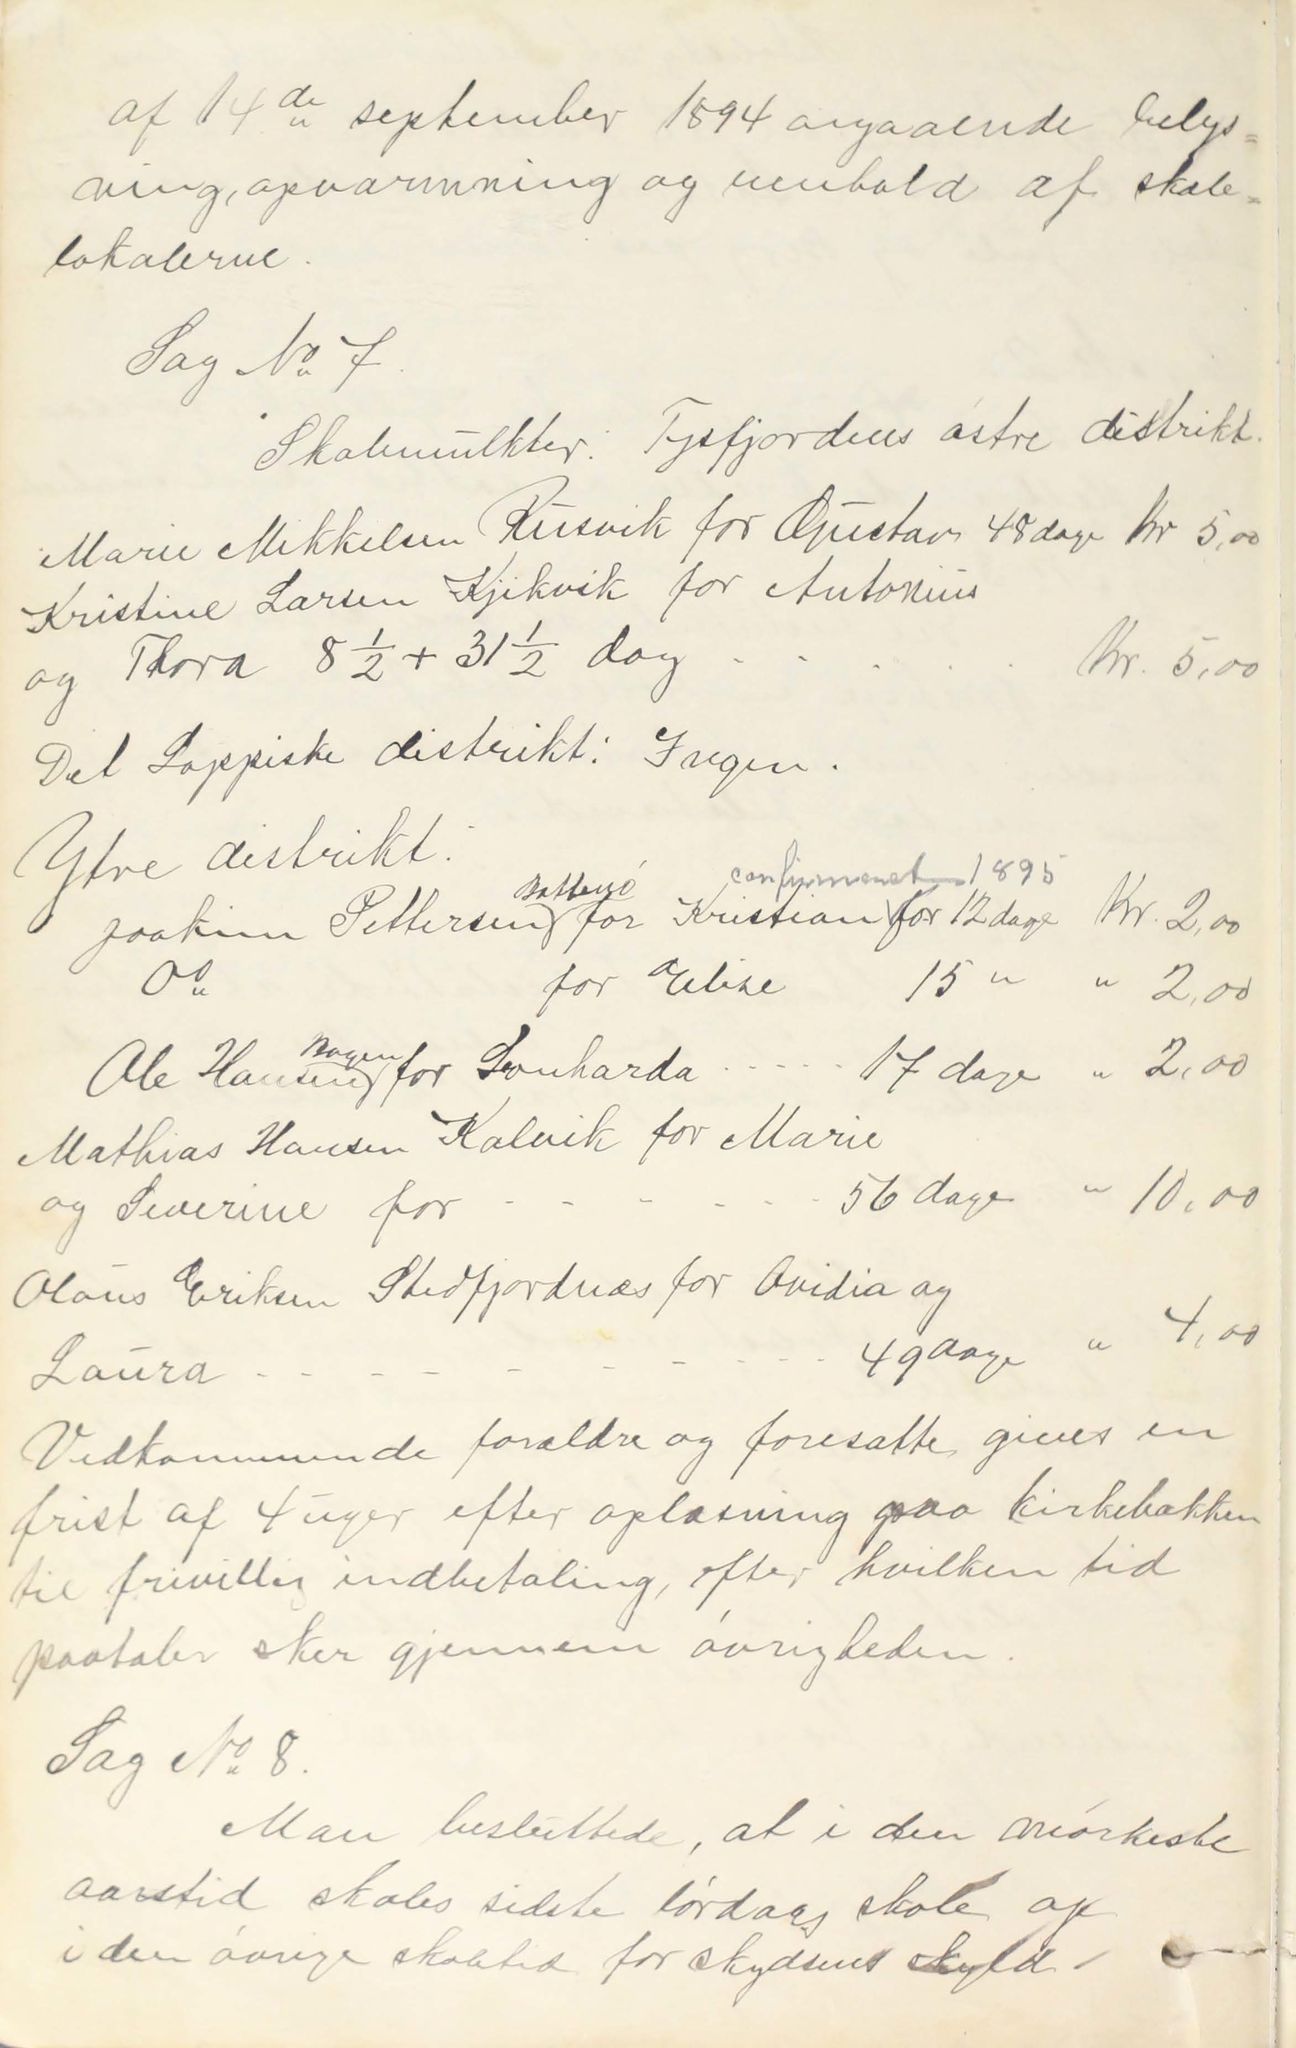 af 14de september 1894 angaaende belys=
ning, opvarmning og renhold af skole=
lokalerne.
Sag No 7.
Skolemulkter: Tysfjordens østre distrikt.
Marie Mikkelsen Rusvik for Gustav 48 dage Kr 5,00
Kristine Larsen Kjikvik for Antonius
og Thora 8 1/2 + 31 1/2 dag . . . . . Kr. 5,00
Det Lappiske distrikt: Ingen.
Ytre distrikt:
confirmeret 1895
Joakim Pettersen for Kristian for 12 dage Kr. 2,00
Do for Elise 15 " " 2,00
Ole Hansen Hagen for Leonharda - - - - - 17 dage " 2,00
Mathias Hansen Kalvik for Marie
og Severine for - - - - - - 56 dage " 10,00
Olaus Eriksen Stedfjordnæs for Ovidia og
Laura - - - - - - - - - - 49 dage " 4,00
Vedkommende forældre og foresatte gives en
frist af 4 uger efter oplæsning paa kirkebakken
til frivillig indbetaling, efter hvilken tid
paataler sker gjennem øvrigheden.
Sag No 8.
Man besluttede, at i den mørkeste
aarstid skoles sidste lørdags skole og
i den øvrige skoletid for skydsens skyld.